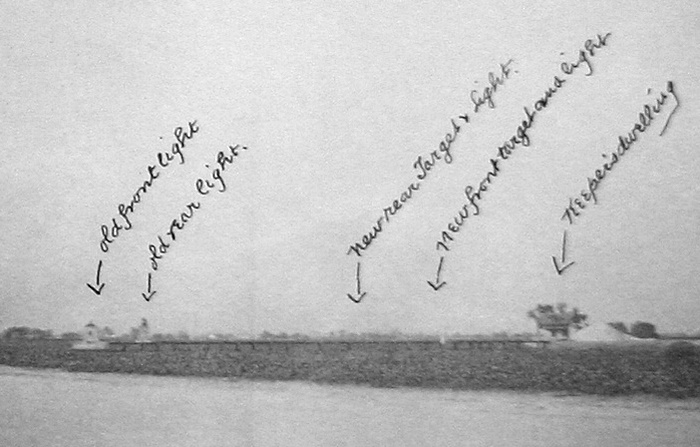 old front light
old rear light.
new rear Target & light.
New front target and light
Keepers dwelling